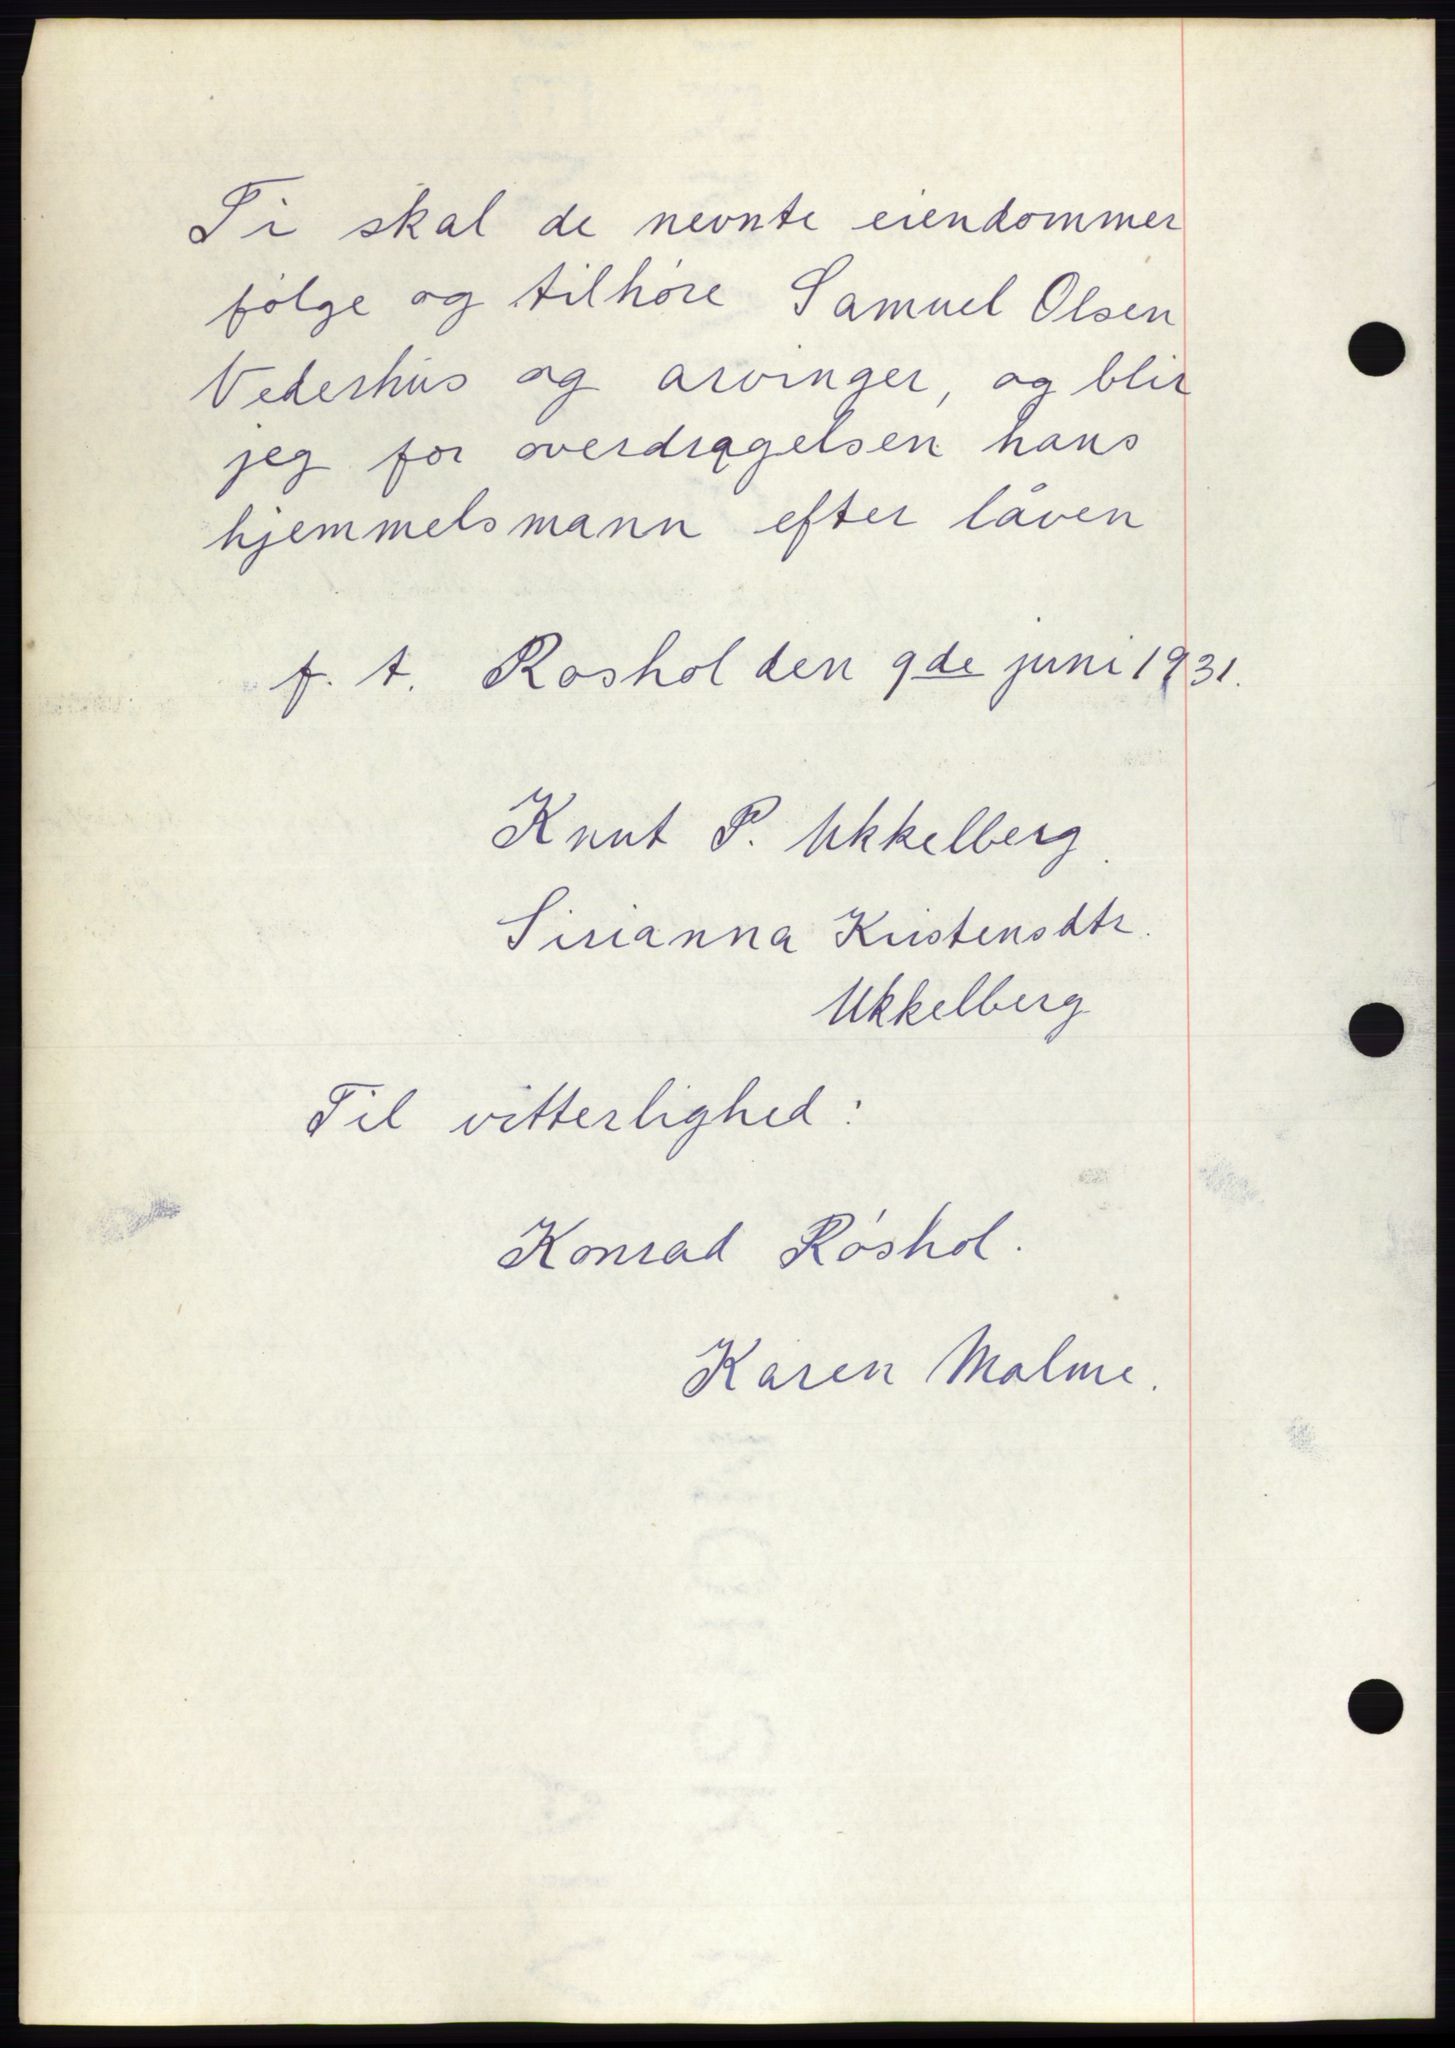 Ti skal de nevnte eiendommer
følge og tilhøre Samuel Olsen
Vederhus og arvinger, og blir
jeg for overdragelsen hans
hjemmelsmann efter låven
f. t. Røshol den 9de juni 1931.
Knut P. Ukkelberg.
Sirianna Kristensdtr.
Ukkelberg
Til vitterlighed:
Konrad Røshol.
Karen Malme.